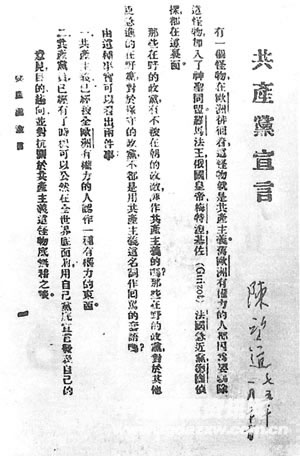 共產黨宣言
陳望道
七五年
一月
日
有一個怪物在歐洲徘徊着這怪物就是共產主義舊歐洲有權力的人都因爲要驅除
這怪物加入了神聖同盟羅馬法王俄國皇帝梅特涅基佐(Guizot)法國急近黨德國偵
探都在這裏面
那些在野的政黨有不被在朝的政敵誣作共產主義的嗎?那些在野的政黨對於其他
更急進的在野黨對於保守的政黨不都是用共產主義這名詞作回罵的套語嗎?
由這種事實可以看出兩件事
一、共產主義已經被全歐洲有權力的人認作一種有權力的東西。
二、共產黨員已經有了時機可以公然在全世界底面前用自己黨底宣言發表自己的
意見目的趨向並對抗關於共產主義這怪物底無稽之談。
共產黨宣言
一